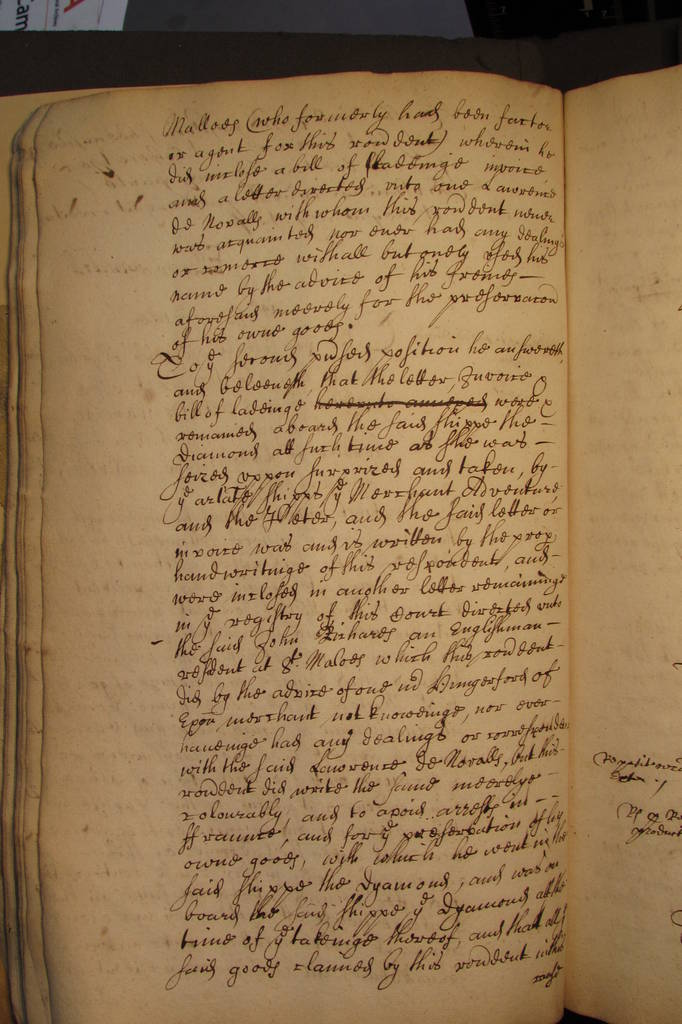 Maloes (who formerly had been factor
or agent for this rondent) wherein he
did inclose a bill of ladeinge invoice
and a letter directed unto one Lawrence
de Novalls with whom this rondent never
was acquainted nor ever had any dealings
or comerce withall but onely used his
name by the advice of his freinds
aforesaid meerely for the preservacon
of his owne goods.
To ye second position he answereth
and beleeveth that the letter, Invoice &
bill of ladeinge hereunto annexed were
remained aboard the said shippe the
Diamond att such time as she was
seized uppon surprized and taken, by
ye arlate shipps ye Merchant Adventure
and the Peter, and the said letter or
invoice was and is written by the prop
handwritinge of this respondent, and
were inclosed in another letter remaininge
in ye registry of this Court directed unto
the said John Richards an Englishman
resident at St. Maloes which this rondent
did by the advice of one Hungerford of
Exon merchant not knoweinge, nor ever
haveinge had any dealings or correspondence
with the said Lawrence de Novalls, but this
rondent did write the same meerelye
colourably, and to avoid arrests in
ffraunce, and for ye preservation of his
owne goods, with which he went in the
said shippe the Dyamond, and was on
board the said shippe ye Dyamond att the
time of ye takeinge thereof, and that all ye
said goods claimed by this rondent in this